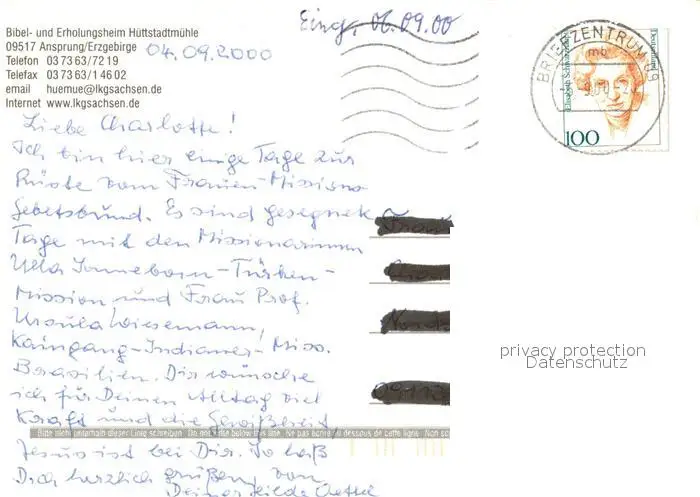 Bibel- und Erholungsheim Hüttstadtmühle
09517 Ansprung/Erzgebirge
Telefon 03 73 63/72 19
Telefax 03 73 63/1 46 02
email huemue@lkgsachsen.de
Internet www.lkgsachsen.de
04.09.2000
Eing. 06.09.00
BRIEFZENTRUM 09
mb
Elisabeth Schwarzhaupt
Deutschland
100
Liebe Charlotte!
Ich bin hier einige Tage zur
Rüste vom Frauen-Missions
Gebetsbund. Es sind gesegnete
Tage mit den Missionarinnen
Ulla Sonneborn-Türken-
Mission und Frau Prof.
Ursula Wiesemann,
Kaingang-Indianer-Miss.
Brasilien. Dir wünsche
ich für Deinen Alltag viel
Kraft und die Gewißheit,
Bitte nicht unterhalb dieser Linie schreiben. Do not write below this line. Ne pas écrire au dessous de cette ligne. Non sc
Jesus ist bei Dir. So laß
Dich herzlich grüßen, von
Deiner Hilde
privacy protection
Datenschutz